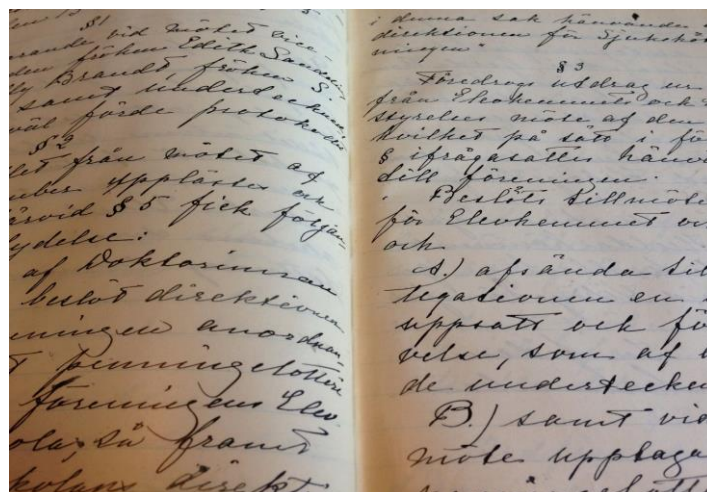 §1
ande vid mötet vice-
den fröken Edith
ly Brandt, fröken S.
samt undertecknad,
väl förde protokollet
§2
let från mötet af
mber upplästes och
ärvid §5 fick följan-
lydelse:
af Doktorinnan
beslöt direktionen
eningen anordnan-
t penningelotteri
föreningens Elev-
ola, så framt
kolans direkt
i denna sak hänvända
direktionen för Sjukskö
ningen"
§3
Föredrogs utdrag ur
från Elevhemmets och
styrelses möte af den
hvilket på sätt i fö
§ ifrågasattes hänv
till föreningen.
Beslöts tillmöte
för Elevhemmet oc
och
A.) afsända till
legationen en
uppsatt och fö
velse, som af
de undertecken
B.) samt vid
möte upptaga